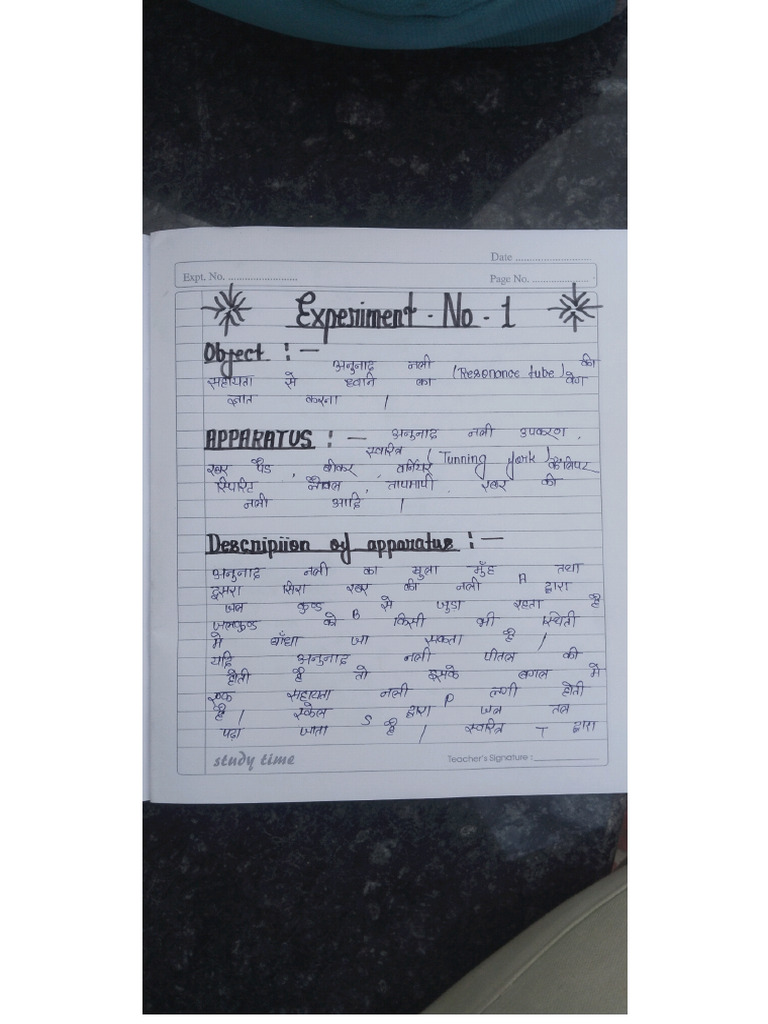 Date ..........................
Expt. No. ........................
Page No. ....................
Experiment - No - 1
Object :-
अनुनाद नली (Resonance tube) की
सहायता से ध्वनि का वेग
ज्ञात करना |
APPARATUS :- अनुनाद नली उपकरण,
स्वरित्र (Tunning fork)
रबर पैड, बीकर, वर्नियर कैलिपर
स्पिरिट लेवल, तापमापी, रबर की
नली आदि |
Description of apparatus :-
अनुनाद नली का खुला मुँह तथा
दूसरा सिरा रबर की नली A द्वारा
जल कुण्ड से जुडा रहता है
जलकुण्ड को B किसी भी स्थिती
मे बाँधा जा सकता है |
यदि अनुनाद नली पीतल की
होती है तो इसके बगल मे
एक सहायता नली P लगी होती
है | स्केल S द्वारा जल तल
पढ़ा जाता है | स्वरित्र T द्वारा
study time
Teacher's Signature : ______________